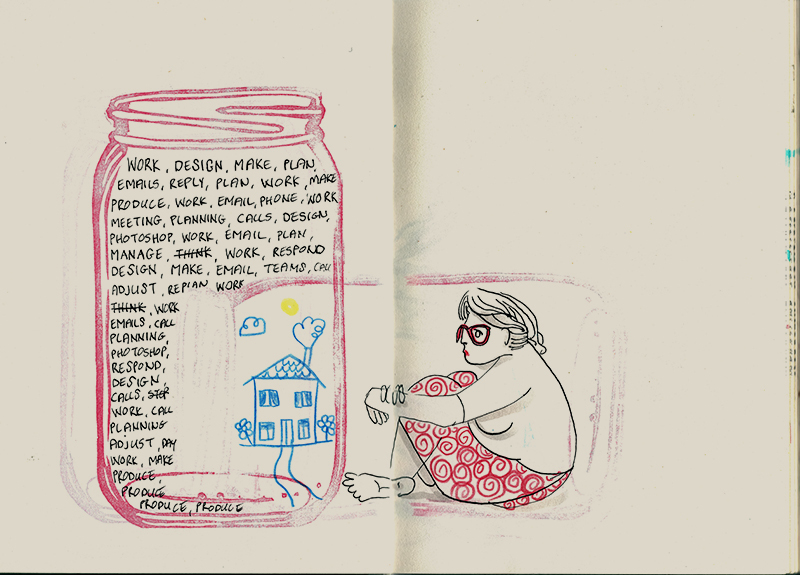 WORK, DESIGN, MAKE, PLAN,
EMAILS, REPLY, PLAN, WORK, MAKE
PRODUCE, WORK, EMAIL, PHONE, WORK
MEETING, PLANNING, CALLS, DESIGN,
PHOTOSHOP, WORK, EMAIL, PLAN,
MANAGE, THINK, WORK, RESPOND
DESIGN, MAKE, EMAIL, TEAMS, CALL
ADJUST, REPLAN WORK
THINK, WORK
EMAILS, CALL
PLANNING
PHOTOSHOP,
RESPOND,
DESIGN,
CALLS, STOP
WORK, CALL
PLANNING
ADJUST, DAY
WORK, MAKE
PRODUCE,
PRODUCE
PRODUCE, PRODUCE